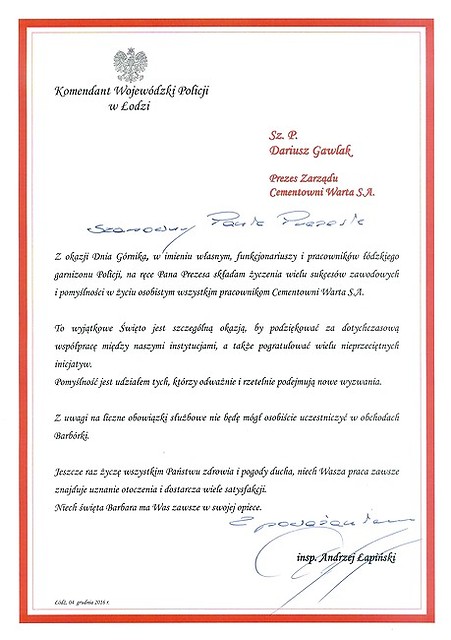 Komendant Wojewódzki Policji
w Łodzi
Sz. P.
Dariusz Gawlak
Prezes Zarządu
Cementowni Warta S.A.
Szanowny Panie Prezesie
Z okazji Dnia Górnika, w imieniu własnym, funkcjonariuszy i pracowników łódzkiego
garnizonu Policji, na ręce Pana Prezesa składam życzenia wielu sukcesów zawodowych
i pomyślności w życiu osobistym wszystkim pracownikom Cementowni Warta S.A.
To wyjątkowe Święto jest szczególną okazją, by podziękować za dotychczasową
współpracę między naszymi instytucjami, a także pogratulować wielu nieprzeciętnych
inicjatyw.
Pomyślność jest udziałem tych, którzy odważnie i rzetelnie podejmują nowe wyzwania.
Z uwagi na liczne obowiązki służbowe nie będę mógł osobiście uczestniczyć w obchodach
Barbórki.
Jeszcze raz życzę wszystkim Państwu zdrowia i pogody ducha, niech Wasza praca zawsze
znajduje uznanie otoczenia i dostarcza wiele satysfakcji.
Niech święta Barbara ma Was zawsze w swojej opiece.
Z poważaniem
insp. Andrzej Łapiński
Łódź, 04. grudnia 2016 r.